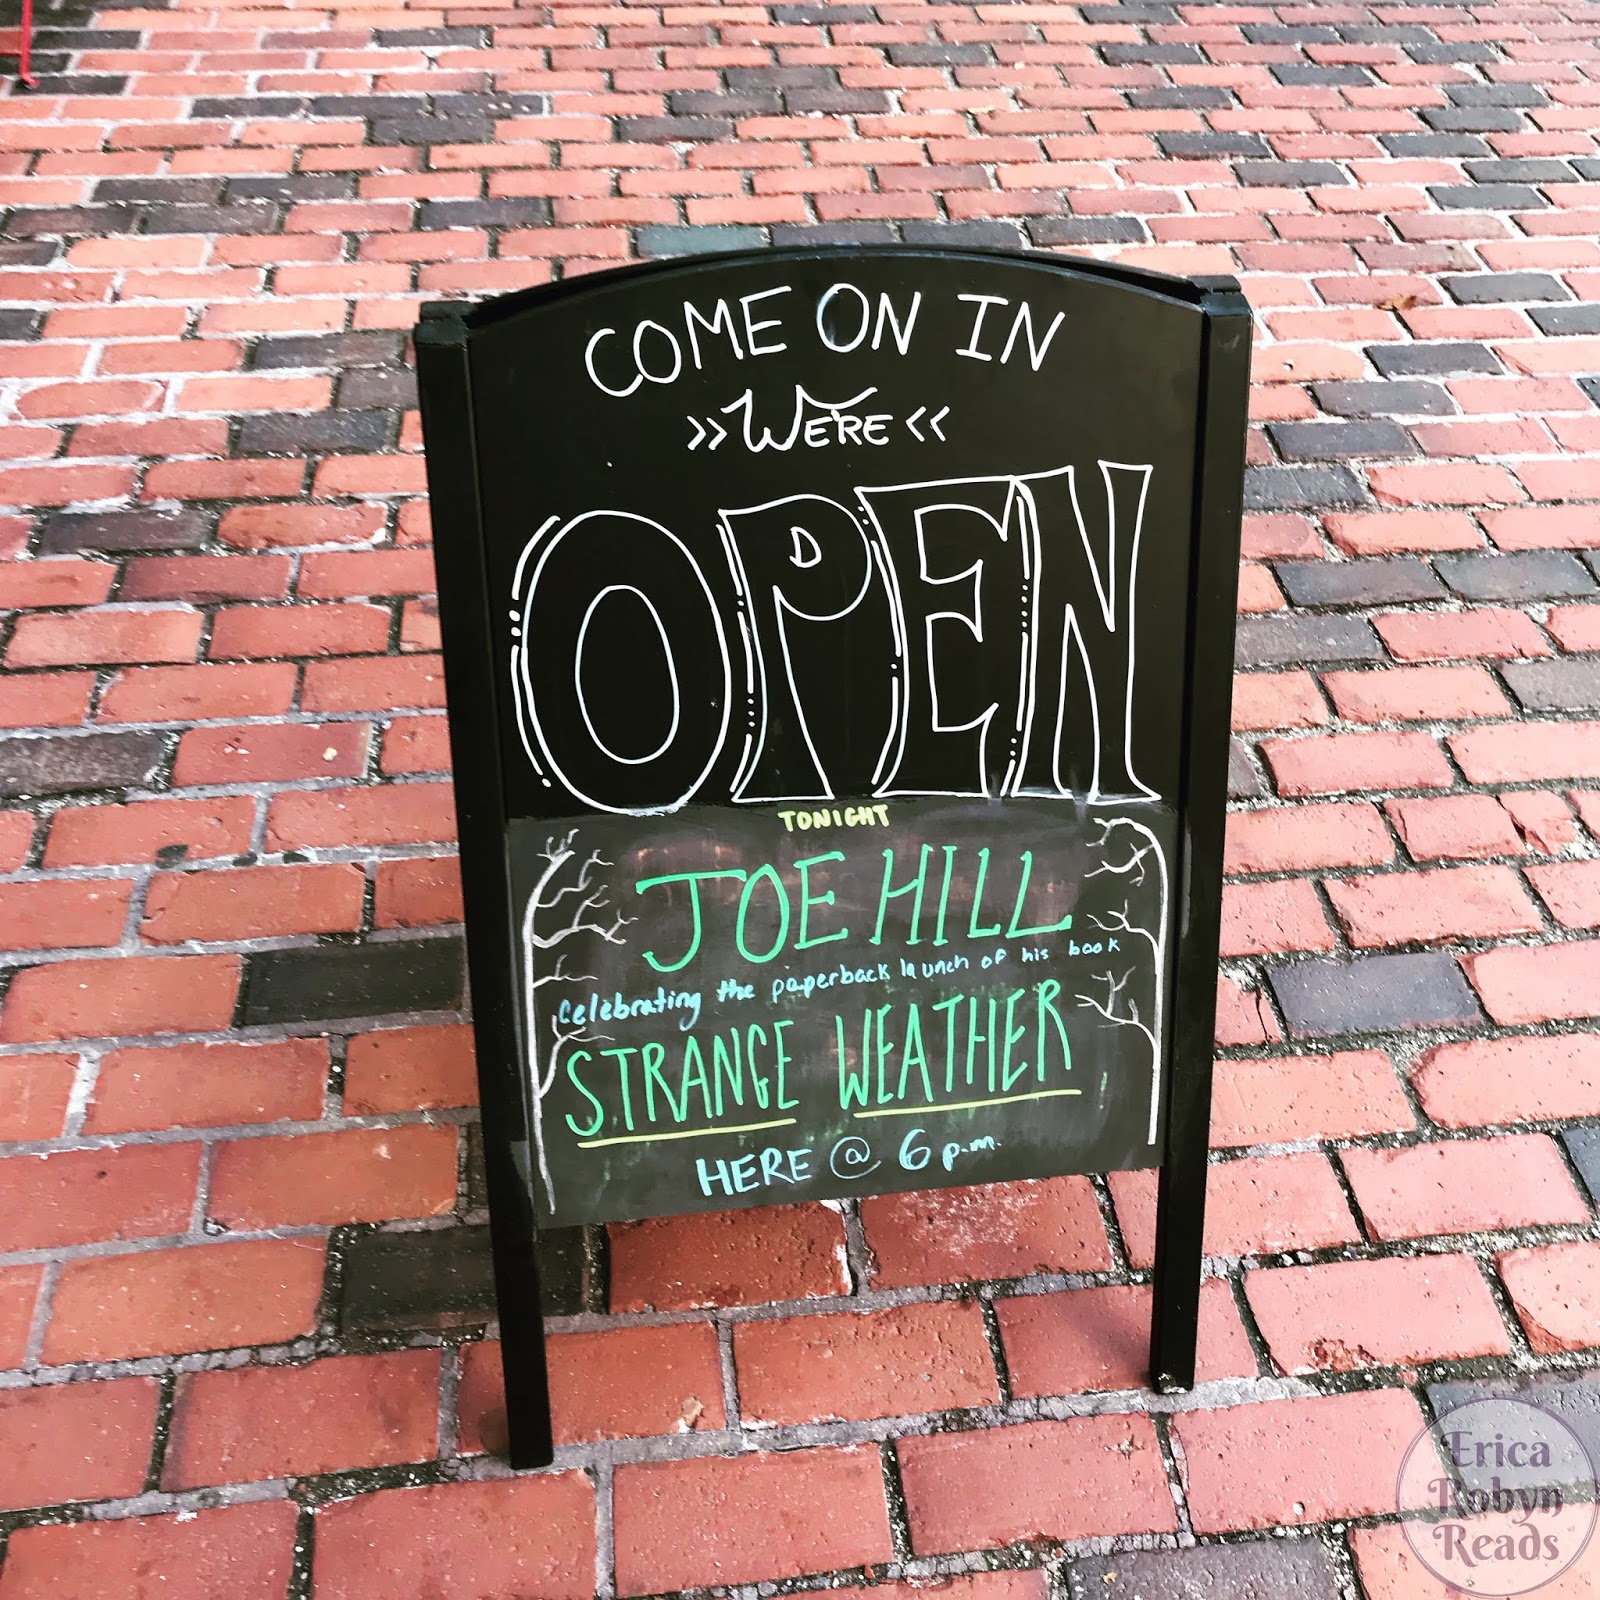 COME ON IN
>> WE'RE <<
OPEN
TONIGHT
JOE HILL
Celebrating the paperback launch of his book
STRANGE WEATHER
HERE @ 6 p.m.
Erica
Robyn
Reads